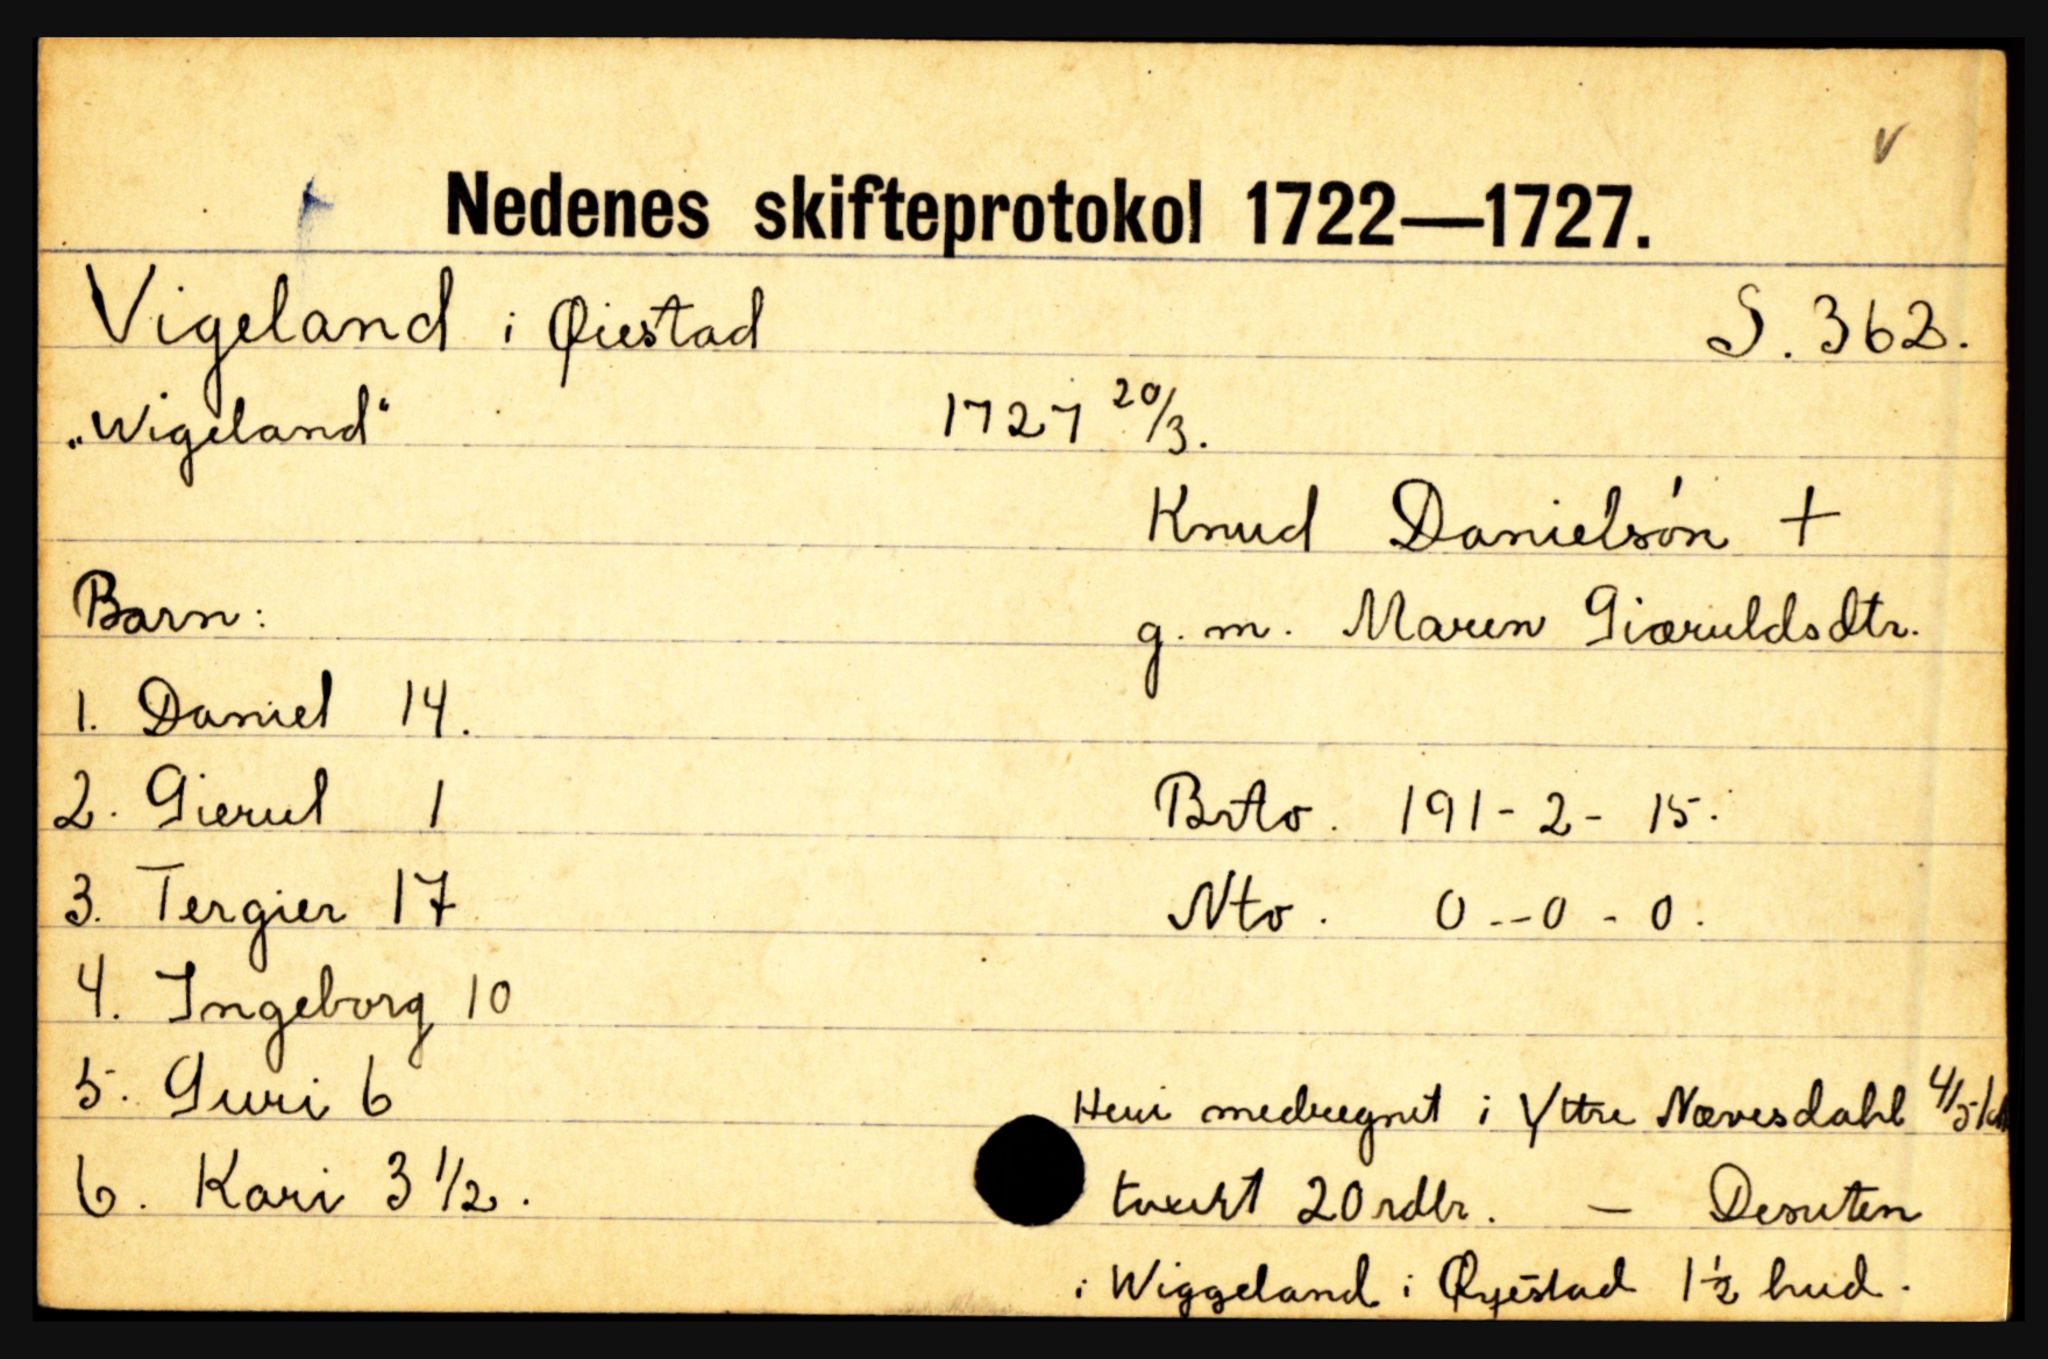 v
Nedenes skifteprotokol 1722—1727.
Vigeland i Øiestad S. 362.
„Wigeland“ 1727 20/3.
Knud Danielsøn +
Barn: g. m. Maren Giæruldsdtr.
1. Daniel 14.
2. Gierul 1 Brto. 191-2-15.
3. Tergier 17 Nto. 0--0-0.
4. Ingeborg 10
5. Guri 6 Heri medregnet i Yttre Nævesdahl 4/5
6. Kari 3 1/2. taxert 20 rdlr. — Desuten
i Wiggeland i Øyestad 1 1/2 hud.